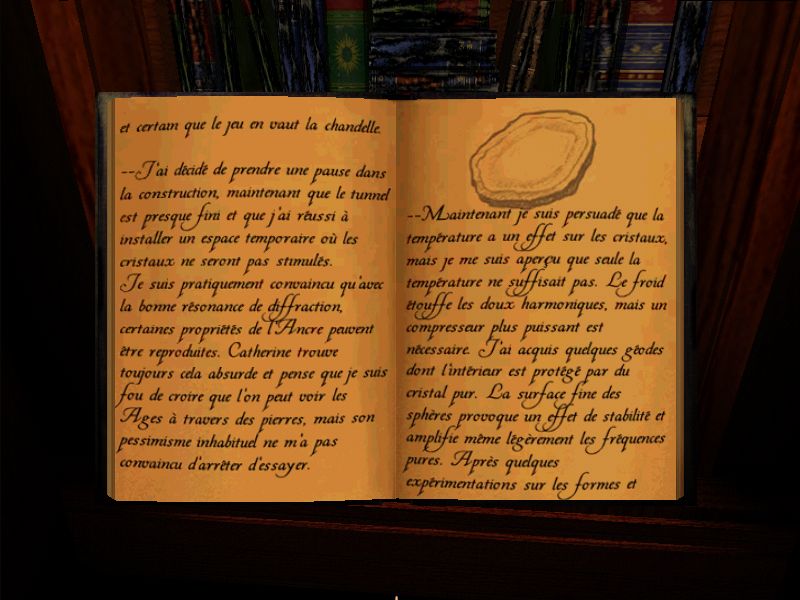 et certain que le jeu en vaut la chandelle.
--J'ai décidé de prendre une pause dans
la construction, maintenant que le tunnel
est presque fini et que j'ai réussi à
installer un espace temporaire où les
cristaux ne seront pas stimulés.
Je suis pratiquement convaincu qu'avec
la bonne résonance de diffraction,
certaines propriétés de l'Ancre peuvent
être reproduites. Catherine trouve
toujours cela absurde et pense que je suis
fou de croire que l'on peut voir les
Ages à travers des pierres, mais son
pessimisme inhabituel ne m'a pas
convaincu d'arrêter d'essayer.
--Maintenant je suis persuadé que la
température a un effet sur les cristaux,
mais je me suis aperçu que seule la
température ne suffisait pas. Le froid
étouffe les doux harmoniques, mais un
compresseur plus puissant est
nécessaire. J'ai acquis quelques géodes
dont l'intérieur est protégé par du
cristal pur. La surface fine des
sphères provoque un effet de stabilité et
amplifie même légèrement les fréquences
pures. Après quelques
expérimentations sur les formes et